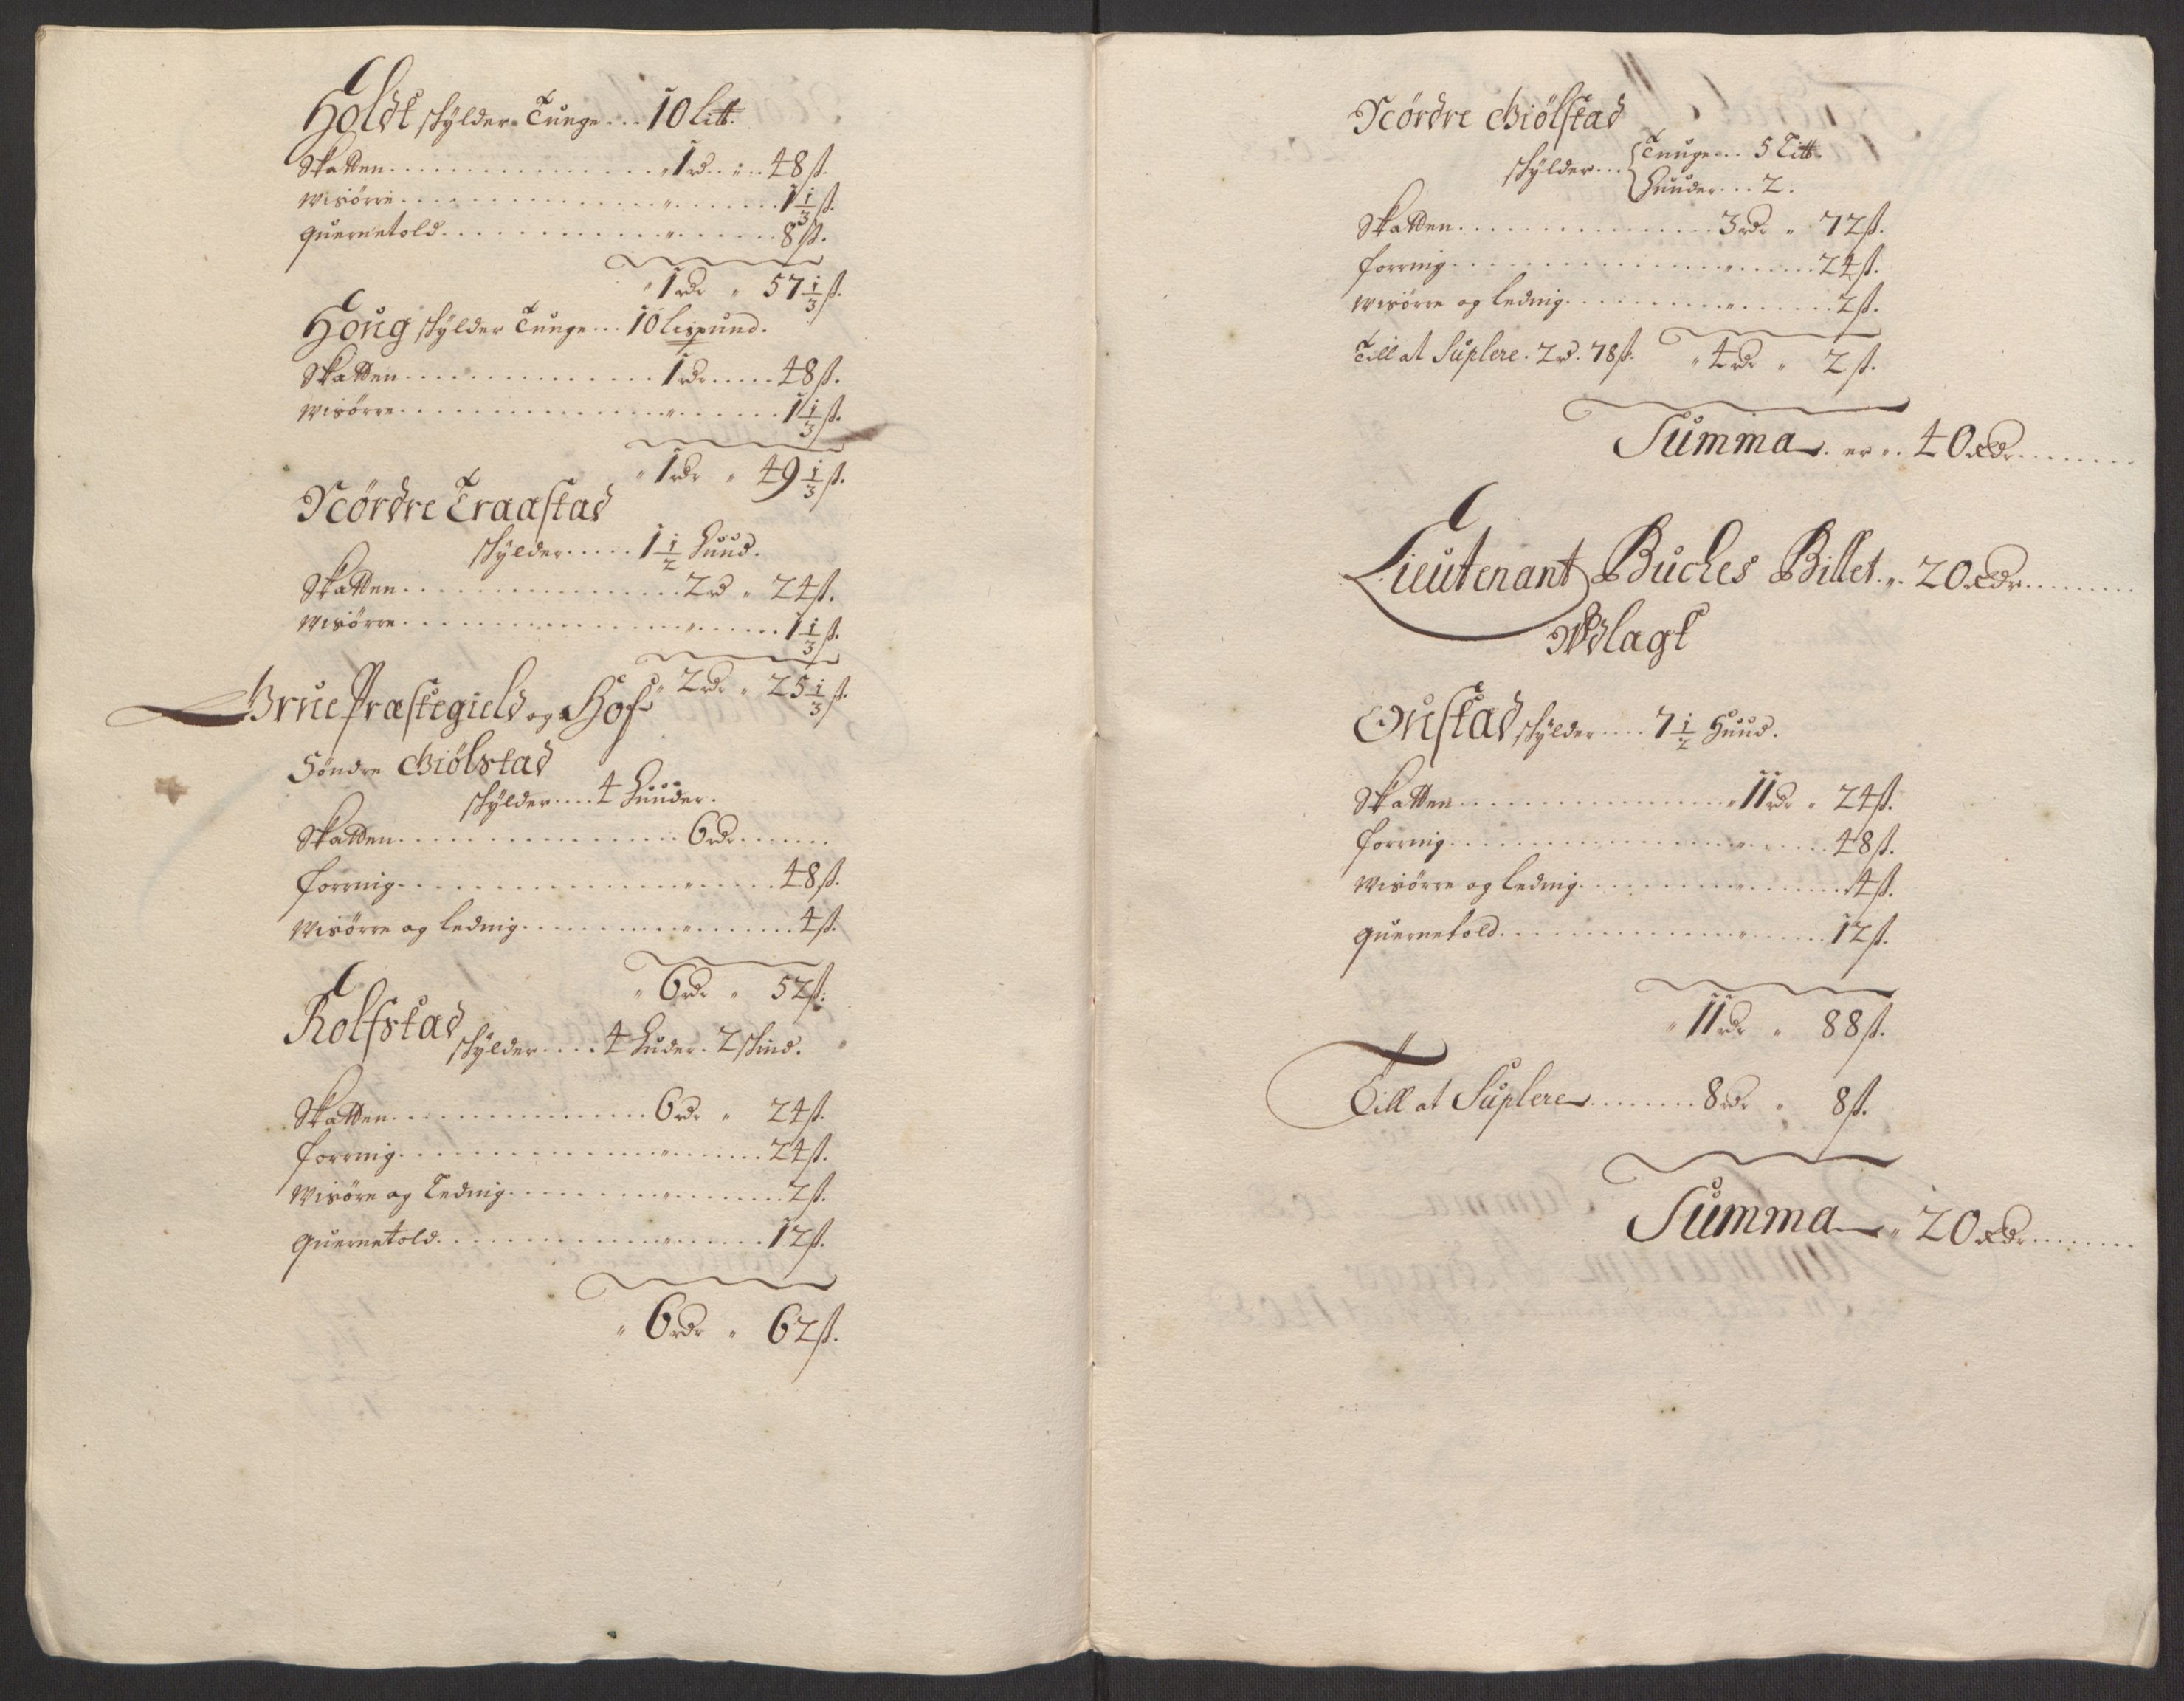 Holdt skylder Tunge... 10 Litt.
Skatten ... 1 rd. 48 ß.
Wisørre ... 1 1/3 ß.
Quernetold ... 8 ß.
1 rdr 57 1/3 ß.
Houg skylder Tunge... 10 Lispund.
Skatten ... 1 rdr ... 48 ß.
Wisørre ... 1 1/3 ß.
1 rdr 49 1/3 ß.
Nördre Traastad
skylder..... 1 1/2 Huud.
Skatten ... 2 rd 24 ß.
Wisørre ... 1 1/3 ß.
2 rdr 25 1/3 ß.
Grue Præstegield og Hof
Söndre Giölstad
skylder.... 4 Huuder.
Skatten ... 6 rdr
forring ... 48 ß.
Wisørre og leding ... 4 ß.
6 rdr 52 ß.
Rolfstad skylder.... 4 Huder. 2 skind.
Skatten ... 6 rdr 24 ß.
forring ... 24 ß.
Wisøre og Leding ... 2 ß.
Quernetold ... 12 ß.
6 rdr 62 ß.
Nördre Giölstad
skylder... Tunge... 5 Litt.
Huuder... 2.
Skatten ... 3 rdr 72 ß.
forring ... 24 ß.
Wisørre og leding ... 2 ß.
Till at Suplere. 2 rd. 78 ß. 4 rdr 2 ß.
Summa er 40 Rdr
Lieutenant Buches Billet 20 Rdr
Udlagt
Onstad skylder.... 7 1/2 Huud.
Skatten ... 11 rdr 24 ß.
forring ... 48 ß.
Wisørre og leding ... 4 ß.
Quernetold ... 12 ß.
11 rdr 88 ß.
Till at Suplere ... 8 rdr 8 ß.
Summa 20 Rdr